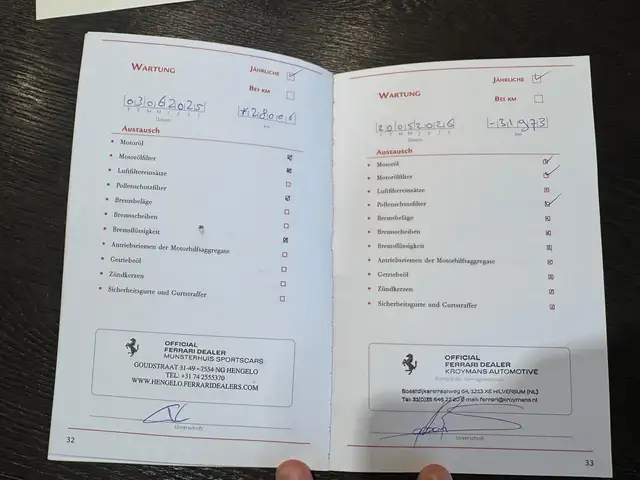 WARTUNG
JÄHRLICHE
BEI KM
03062025
T T M M J J J J
Datum
72806
KM
Austausch
• Motoröl
• Motorölfilter
• Luftfiltereinsätze
• Pollenschutzfilter
• Bremsbeläge
• Bremsscheiben
• Bremsflüssigkeit
• Antriebsriemen der Motorhilfsaggregate
• Getriebeöl
• Zündkerzen
• Sicherheitsgurte und Gurtstraffer
OFFICIAL
FERRARI DEALER
MUNSTERHUIS SPORTSCARS
GOUDSTRAAT 31-49 • 7554 NG HENGELO
TEL: +31 74 2555370
WWW.HENGELO.FERRARIDEALERS.COM
Unterschrift
32
WARTUNG
JÄHRLICHE
BEI KM
20052026
T T M M J J J J
Datum
-31973
KM
Austausch
• Motoröl
• Motorölfilter
• Luftfiltereinsätze
• Pollenschutzfilter
• Bremsbeläge
• Bremsscheiben
• Bremsflüssigkeit
• Antriebsriemen der Motorhilfsaggregate
• Getriebeöl
• Zündkerzen
• Sicherheitsgurte und Gurtstraffer
OFFICIAL
FERRARI DEALER
KROYMANS AUTOMOTIVE
Soestdijkerstraatweg 64, 1213 XE HILVERSUM (NL)
Tel 31(0)35 646 22 20 E-mail: ferrari@kroymans.nl
Unterschrift
33